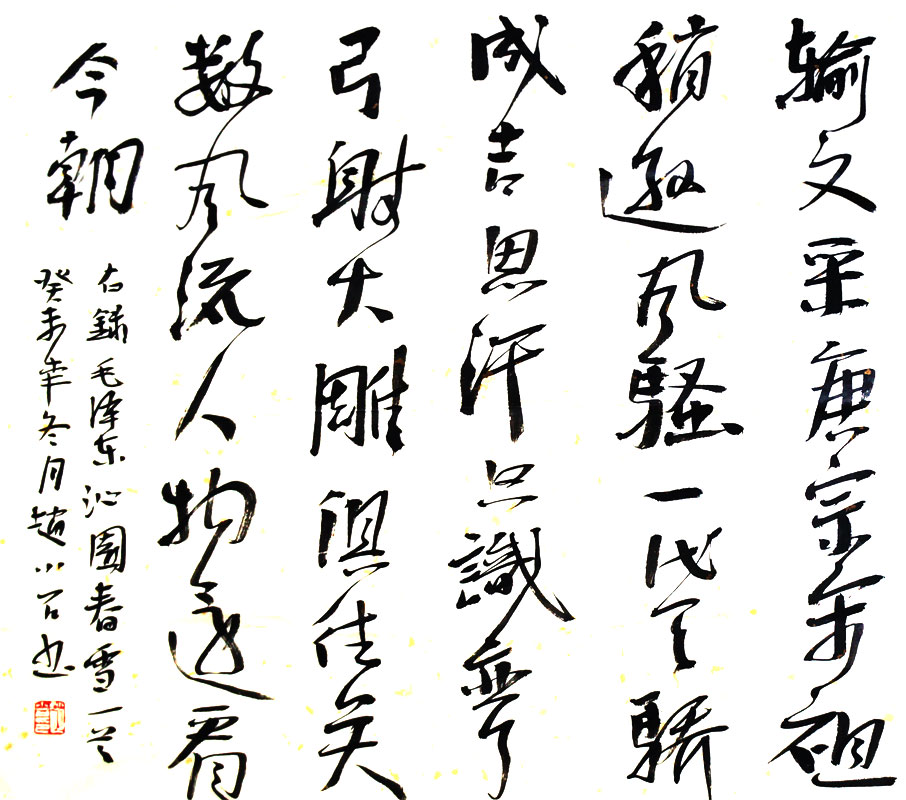 输文采唐宗宋祖
稍遜风騷一代天驕
成吉思汗只識彎
弓射大雕俱往矣
数风流人物還看
今朝
右録毛泽东沁園春雪一首
癸未年冬月趙小石书